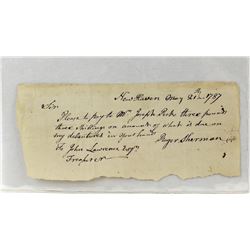 New Haven May 21th 1787
Sir
Please to pay to Mr Joseph Peck three pounds
three shillings on account of what is due on
my debenture in your hands
Roger Sherman
To John Lawrence Esqr
Treasurer